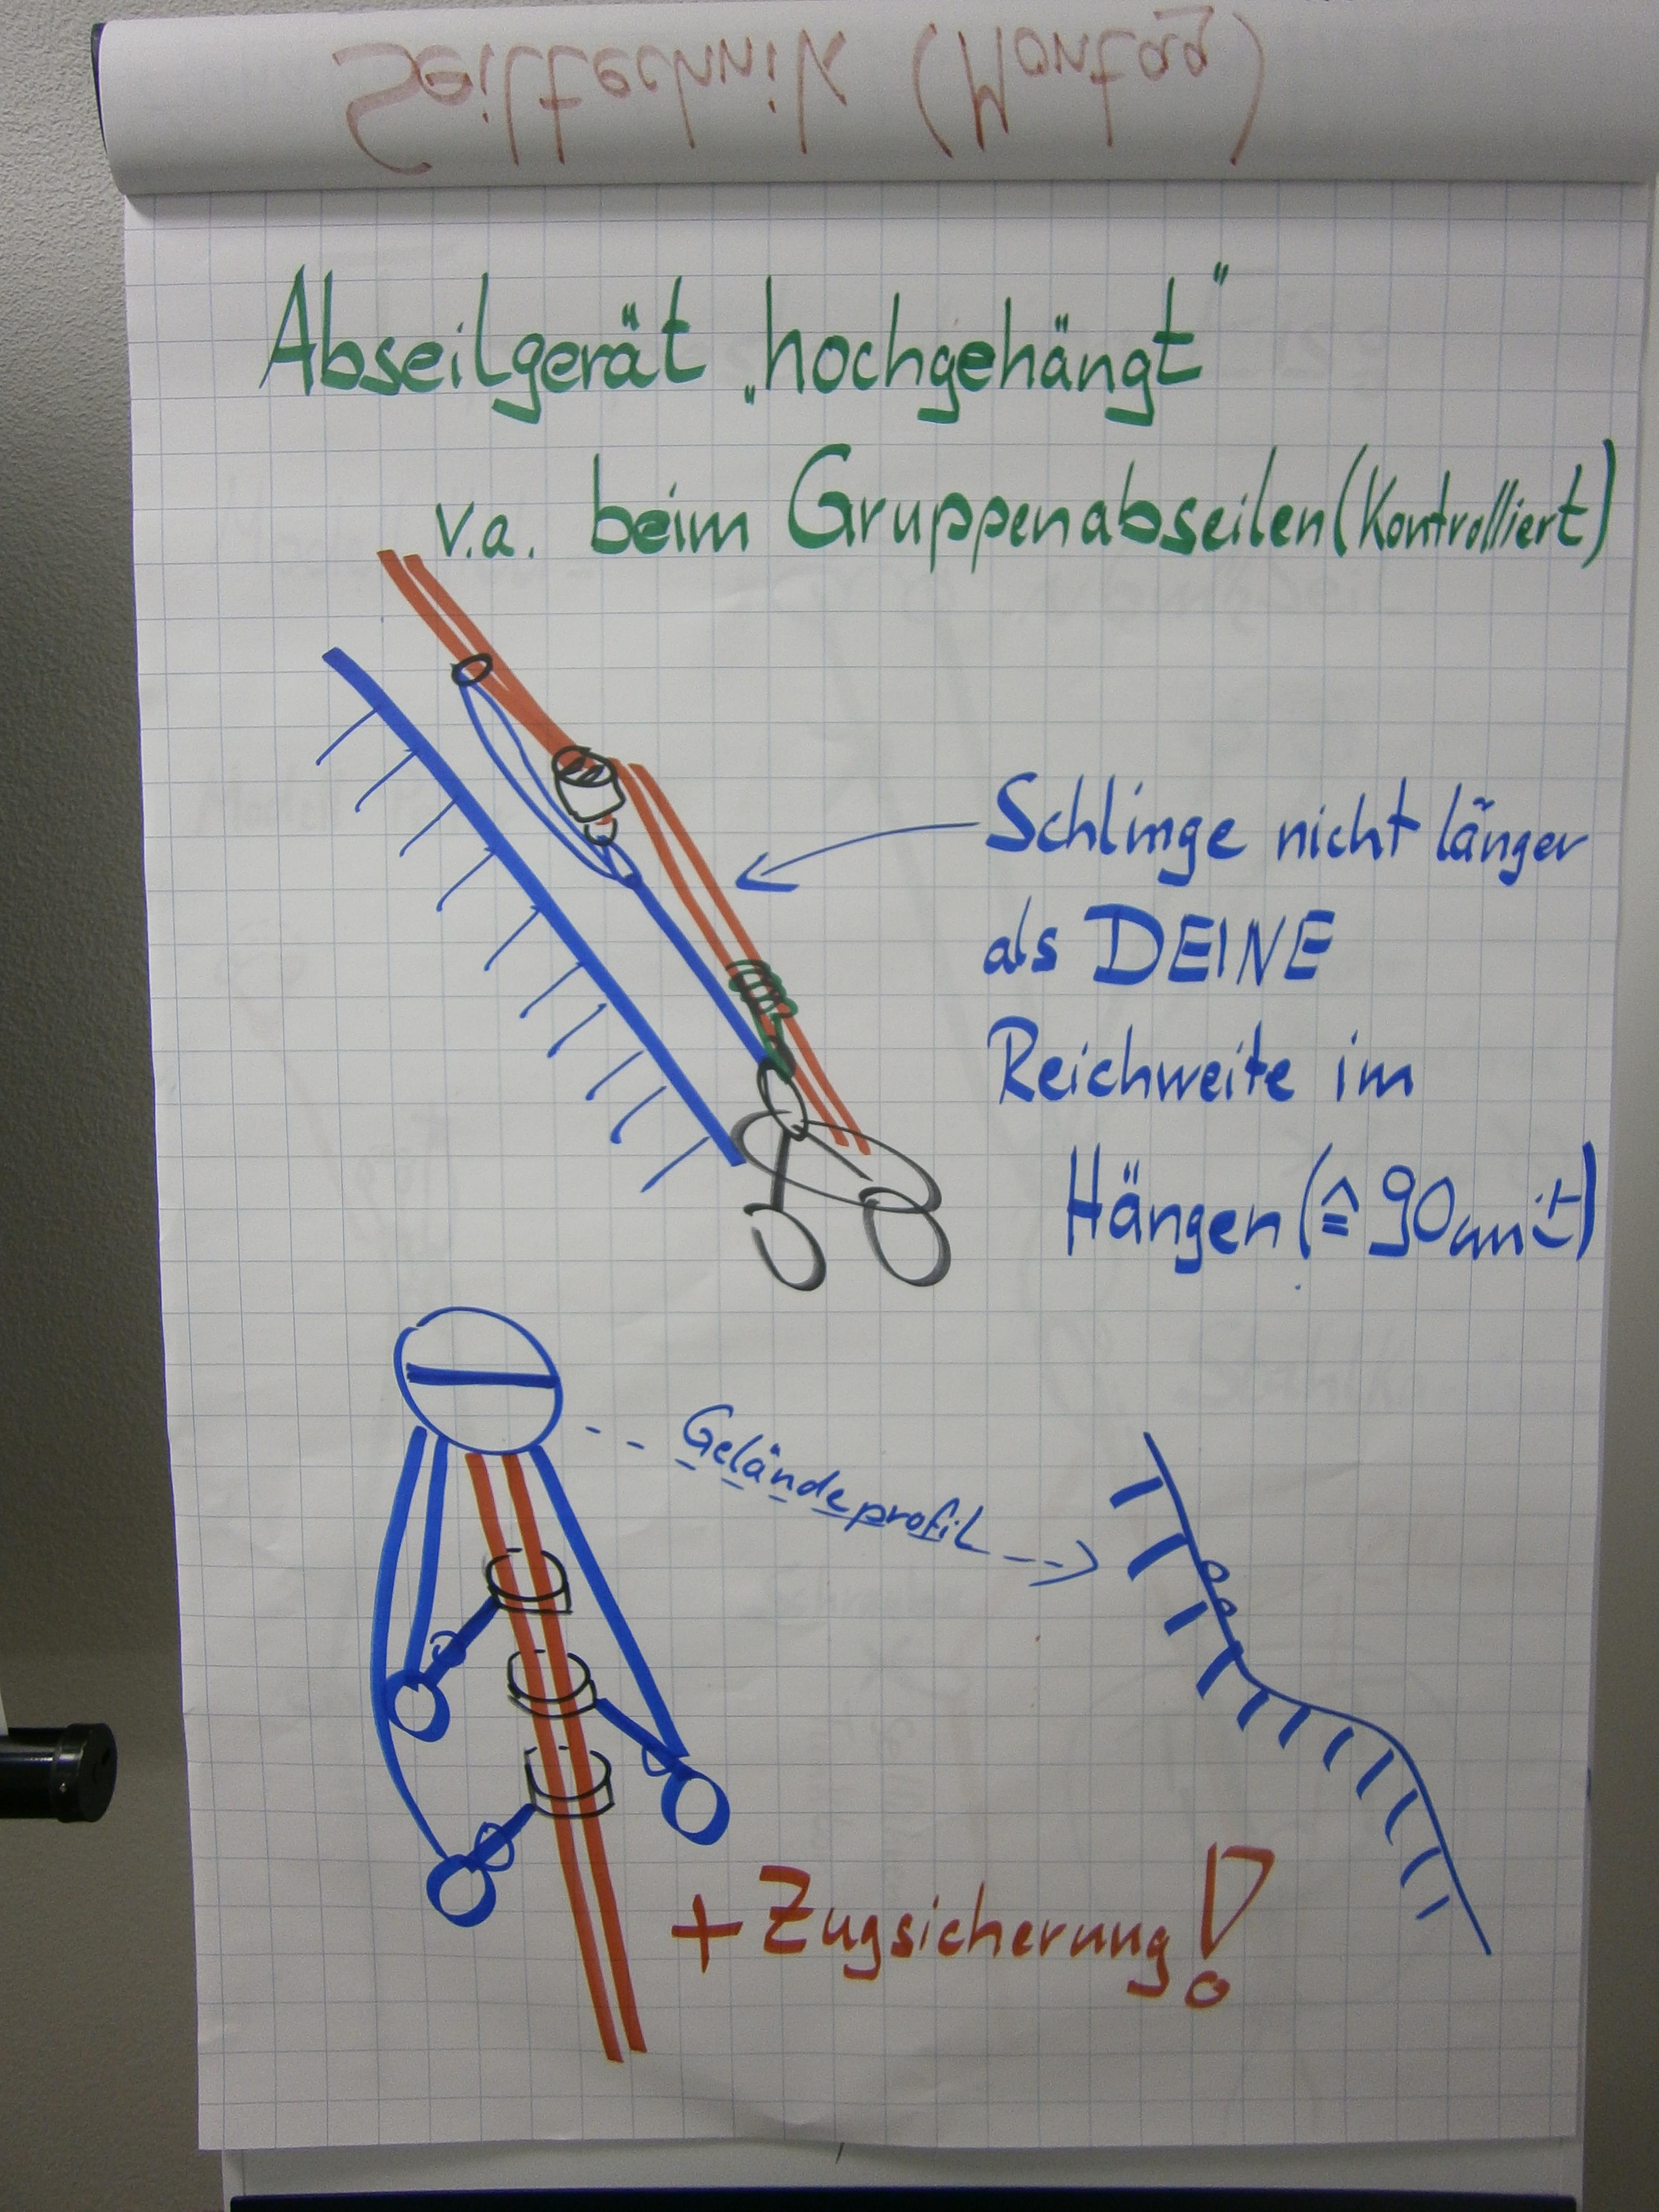 Seiltechnik (Montag)
Abseilgerät „hochgehängt"
v.a. beim Gruppenabseilen (Kontrolliert)
Schlinge nicht länger
als DEINE
Reichweite im
Hängen (≙ 90cm ±)
Geländeprofil
+ Zugsicherung!